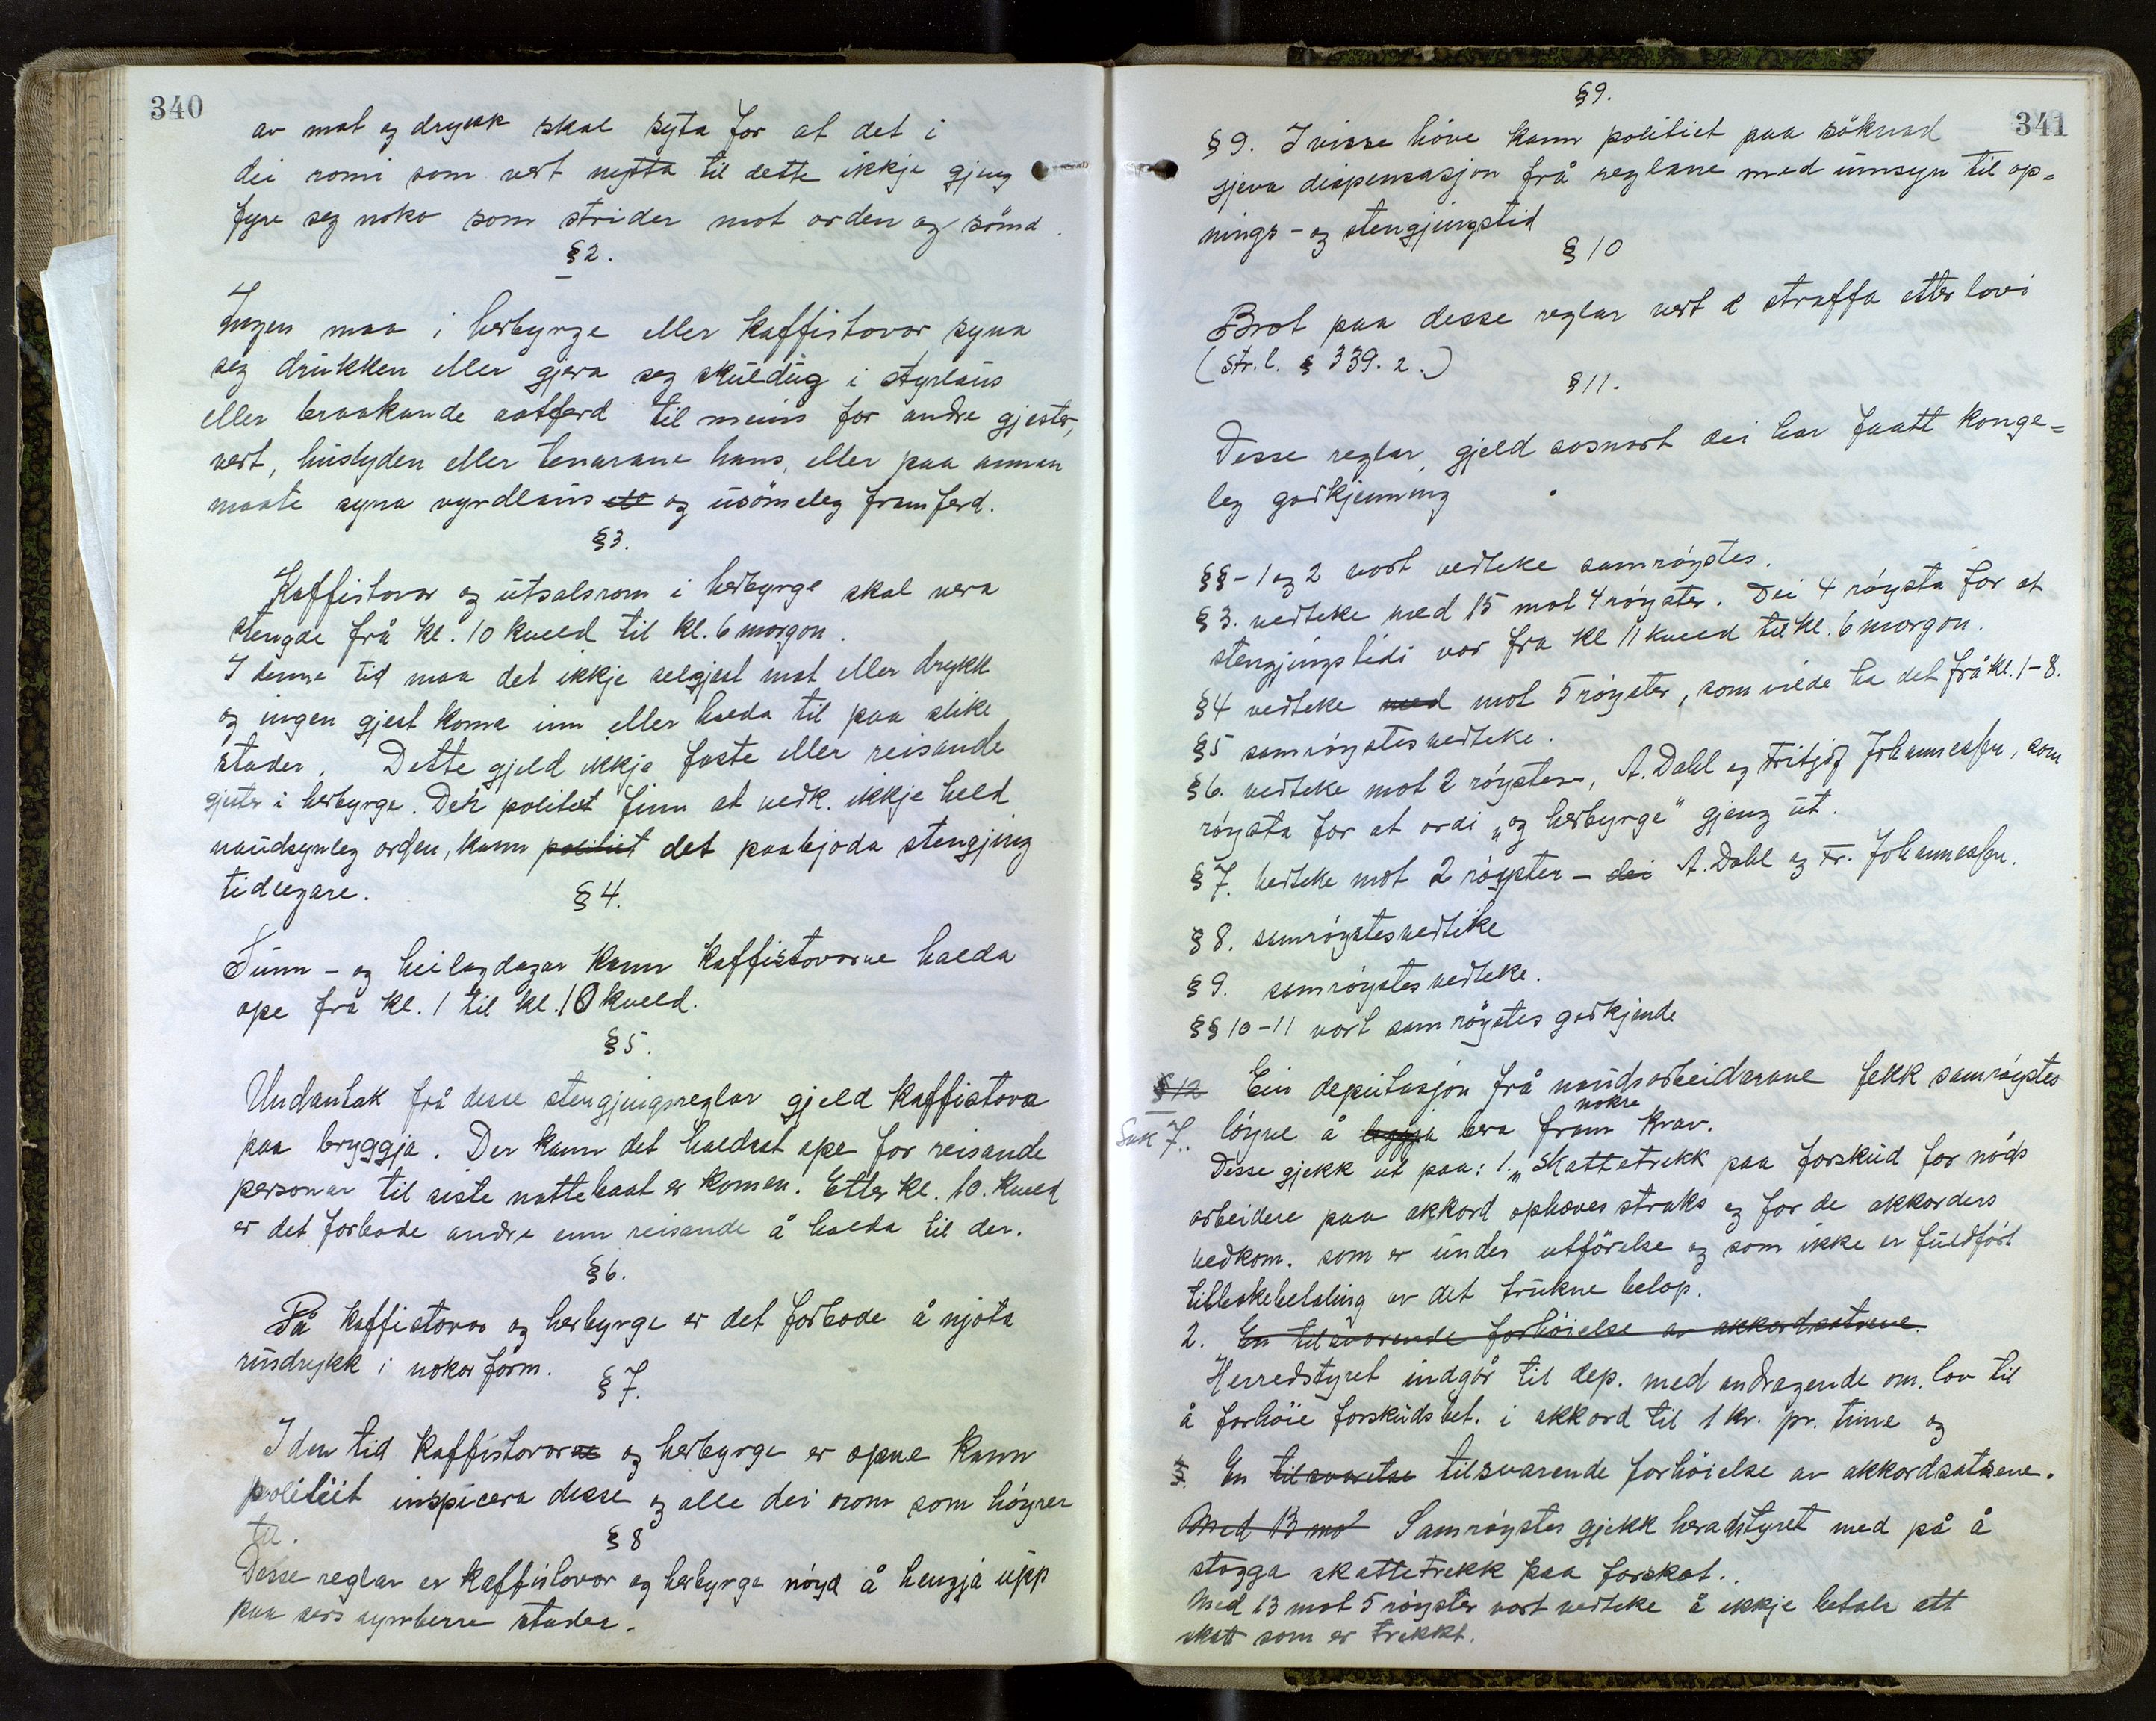 340
av mat og drykk skal syta for at det i
dei romi som vert nytta til dette ikkje gjeng
fyre seg noko som strider mot orden og sömd.
§2.
Ingen maa i herbyrge eller kaffistovor syna
seg drukken eller gjera seg skuldug i styrlaus
eller braakande aatferd til meins for andre gjester,
vert, huslyden eller tenarane hans, eller paa annan
maate syna vyrdlaus og usömeleg framferd.
§3.
Kaffistovor og utsalsrom i herbyrge skal vera
stengde frå kl. 10 kveld til kl. 6 morgon.
I denne tid maa det ikkje selgjast mat eller drykk
og ingen gjest koma inn eller halda til paa slike
stader. Dette gjeld ikkje faste eller reisande
gjester i herbyrge. Der politiet finn at vedk. ikkje held
naudsynleg orden, kann politiet det paabjoda stengjing
tidlegare.
§4.
Sunn- og heilagdagar kann kaffistovorne halda
ope frå kl. 1 til kl. 10 kveld.
§5.
Undantak frå desse stengjingsreglar gjeld kaffistova
paa bryggja. Der kann det haldast ope for reisande
personar til siste nattebaat er komen. Etter kl. 10. kveld
er det forbode andre enn reisande å halda til der.
§6.
På kaffistovor og herbyrge er det forbode å njota
rusdrykk i nokor form.
§7.
I den tid kaffistovorne og herbyrge er opne kann
politiet inspicera desse og alle dei rom som höyrer
til.
§8
Desse reglar er kaffistovor og herbyrge nöyd å hengja upp
paa sers synberre stader.
341
§9.
§9. I visse höve kann politiet paa söknad
gjeva dispensasjon frå reglane med umsyn til op=
nings- og stengjingstid
§10
Brot paa desse reglar vert straffa etter lovi
(Str.l. § 339. 2.)
§11.
Desse reglar gjeld sosnart dei har faatt konge=
leg godkjenning
§§-1 og 2 vart vedteke samröystes.
§3. vedteke med 15 mot 4 röyster. Dei 4 röysta for at
stengjingstidi var fra kl 11 kveld til kl. 6 morgon.
§4 vedteke med mot 5 röyster, som vilde ha det frå kl. 1-8.
§5 samröystes vedteke.
§6. vedteke mot 2 röyster, A. Dahl og Fritjof Johannessen, som
röysta for at ordi "og herbyrge" gjeng ut.
§7. vedteke mot 2 röyster - dei A. Dahl og Fr. Johannessen.
§8. samröystes vedteke
§9. samröystes vedteke.
§§10-11 vart samröystes godkjende
§12 Ein deputasjon frå naudsarbeidarane fekk samröystes
Sak 7. löyve å leggja bera fram nokre krav.
Disse gjekk ut paa: 1. "Skattetrekk paa forskud for nöds
arbeidere paa akkord ophæves straks og for de akkorders
vedkom. som er under utförelse og som ikke er fuldfört
tilbakebetaling av det trukne belöp.
2. En tilsvarende forhöielse av akkordsatsene.
Herredstyret indgår til dep. med andragende om lov til
å forhöie forskudsbet. i akkord til 1 kr. pr. time og
3. En tilsvarelse tilsvarende forhöielse av akkordsatsene.
Med 13 mot Samröystes gjekk heradstyret med på å
stogga skattetrekk paa forskot.
Med 13 mot 5 röyster vart vedteke å ikkje betale att
skatt som er trekkt.